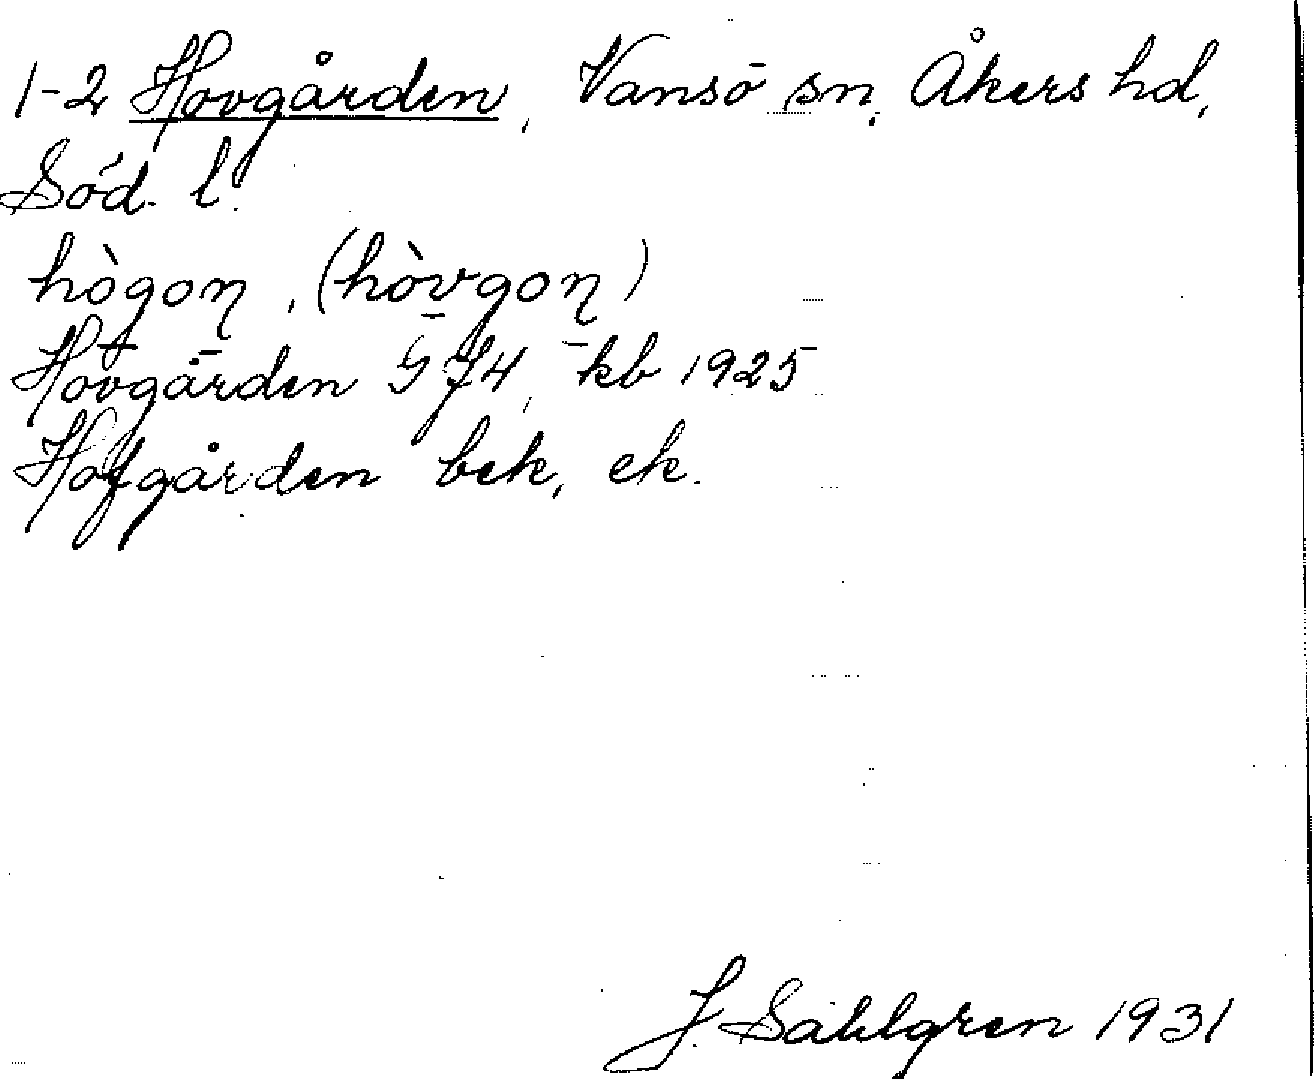 1-2 Hovgården, Vansö sn, Åkers hd,
Söd. l.
hògoņ, (hòvgoņ)
Hovgården GJ4, kb 1925
Hofgården bek, ek.
J. Sahlgren 1931